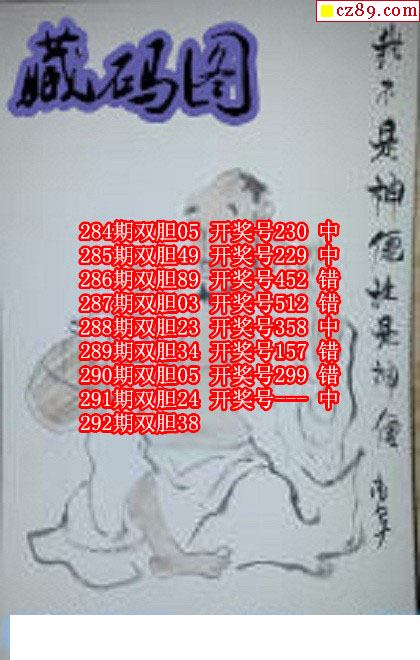 cz89.com
藏码图
284期双胆05 开奖号230 中
285期双胆49 开奖号229 中
286期双胆89 开奖号452 错
287期双胆03 开奖号512 错
288期双胆23 开奖号358 中
289期双胆34 开奖号157 错
290期双胆05 开奖号299 错
291期双胆24 开奖号--- 中
292期双胆38
我不是神仙就是神仙